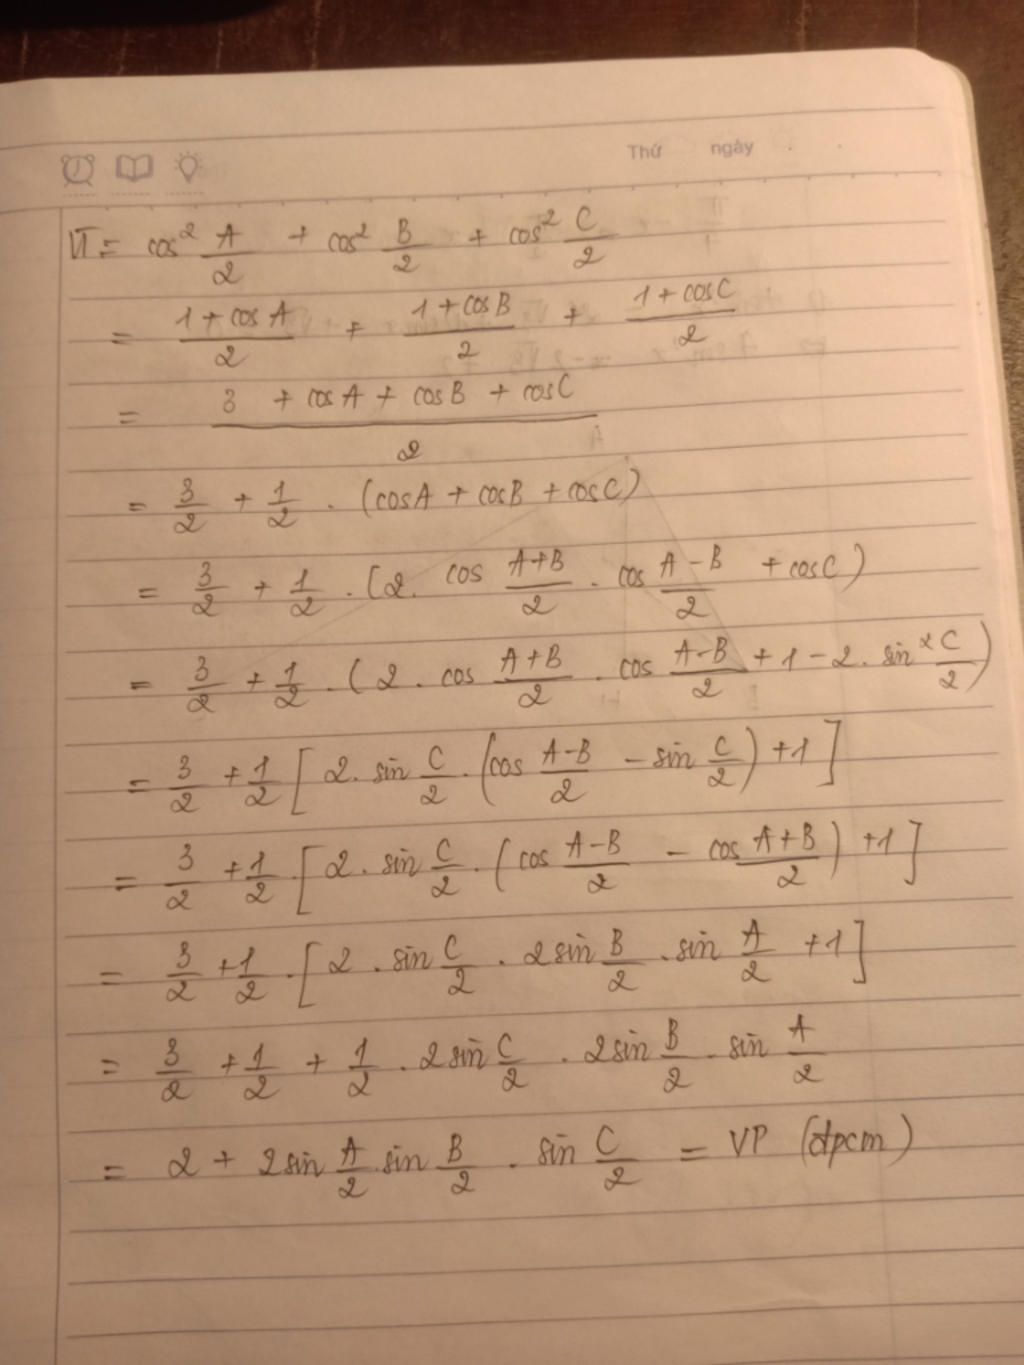 Thứ ngày
VT = cos² A/2 + cos² B/2 + cos² C/2
= (1 + cos A)/2 + (1 + cos B)/2 + (1 + cos C)/2
= (3 + cos A + cos B + cos C)/2
= 3/2 + 1/2 . (cos A + cos B + cos C)
= 3/2 + 1/2 . (2. cos (A+B)/2 . cos (A-B)/2 + cos C)
= 3/2 + 1/2 . (2 . cos (A+B)/2 . cos (A-B)/2 + 1 - 2. sin² C/2)
= 3/2 + 1/2 [2. sin C/2 . (cos (A-B)/2 - sin C/2) + 1]
= 3/2 + 1/2 . [2. sin C/2 . (cos (A-B)/2 - cos (A+B)/2) + 1]
= 3/2 + 1/2 . [2 . sin C/2 . 2sin B/2 . sin A/2 + 1]
= 3/2 + 1/2 + 1/2 . 2sin C/2 . 2sin B/2 . sin A/2
= 2 + 2sin A/2 . sin B/2 . sin C/2 = VP (đpcm)